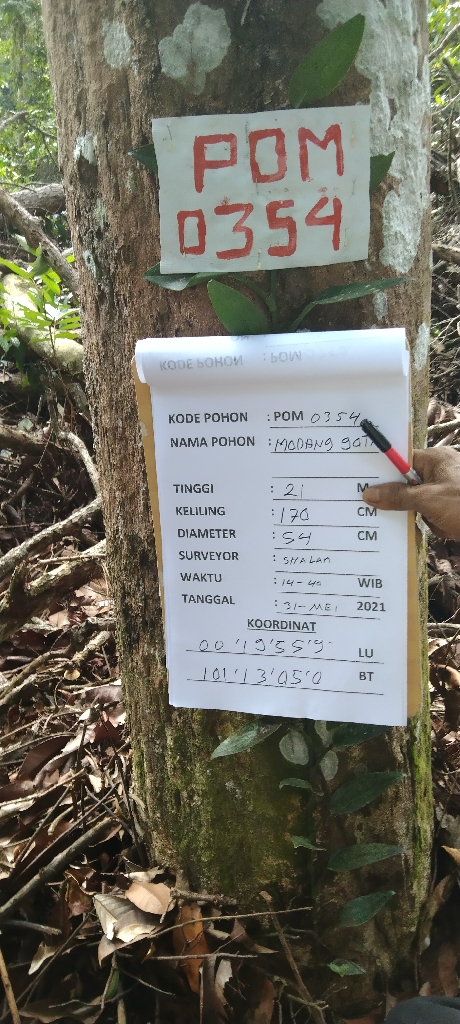 POM
0354
KODE POHON : POM
KODE POHON : POM 0354
NAMA POHON : MODANG
TINGGI : 21 M
KELILING : 170 CM
DIAMETER : 54 CM
SURVEYOR : SHALAN
WAKTU : 14-40 WIB
TANGGAL : 31-MEI 2021
KOORDINAT
00'19'55'9 LU
101'13'05'0 BT